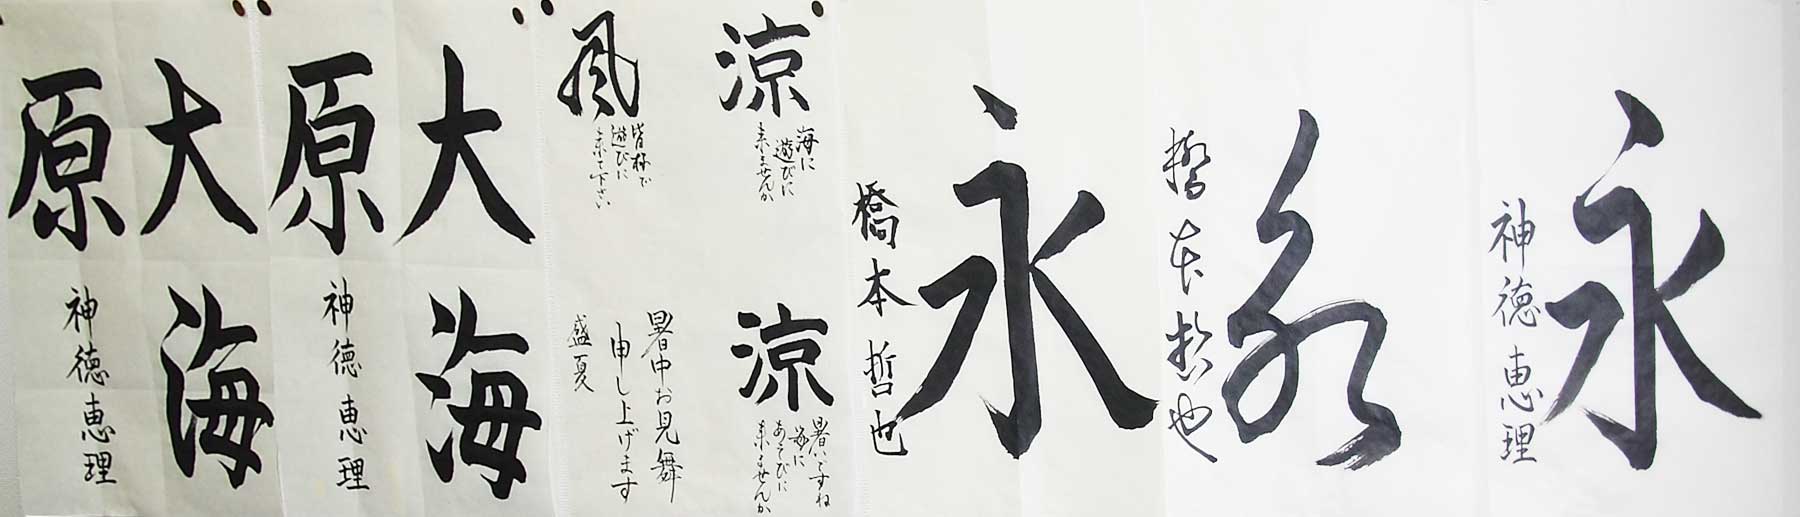 永
神徳恵理
永
橋本哲也
永
橋本哲也
涼
海に
遊びに
来ませんか
風
皆様で
遊びに
来て下さい
涼
暑いですね
海に
あそびに
来ませんか
暑中お見舞
申し上げます
盛夏
大海
原
神徳恵理
大海
原
神徳恵理